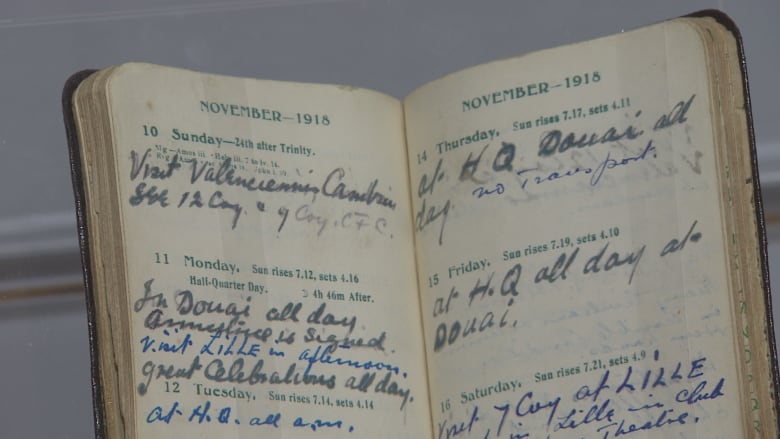 NOVEMBER—1918
10 Sunday—24th after Trinity.
Visit Valenciennis, Cambrai
See 12 Coy. & 9 Coy. C.F.C.
11 Monday. Sun rises 7.12, sets 4.16
Half-Quarter Day. ☽ 4h 46m After.
In Douai all day.
Armistice is Signed.
Visit LILLE in afternoon.
great Celebrations all day.
12 Tuesday. Sun rises 7.14, sets 4.14
at H.Q. all a.m.
NOVEMBER—1918
14 Thursday. Sun rises 7.17, sets 4.11
at H.Q Douai all
day. no Transport.
15 Friday. Sun rises 7.19, sets 4.10
at H.Q all day at
DOUAI.
16 Saturday. Sun rises 7.21, sets 4.9
Visit 7 Coy at LILLE
in Lille in club
Theatre.